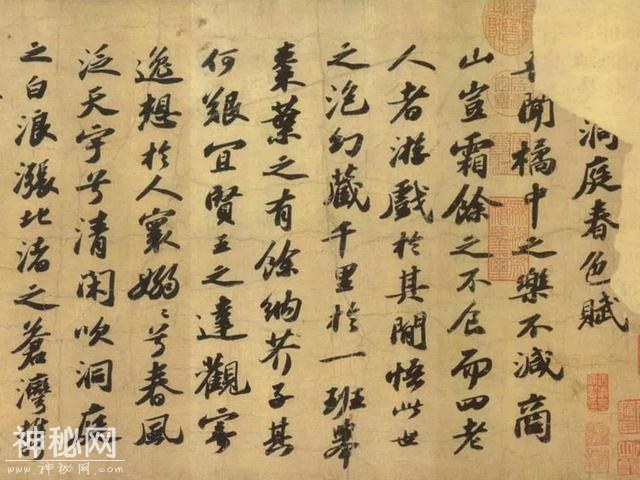 洞庭春色賦
聞橘中之樂不減商
山豈霜餘之不食而四老
人者游戲於其間悟此世
之泡幻藏千里於一班舉
棗葉之有餘納芥子其
何艱宜賢王之達觀寄
逸想於人寰嫋〻兮春風
泛天宇兮清閑吹洞庭
之白浪漲北渚之蒼灣
神秘网
www.神秘网.com